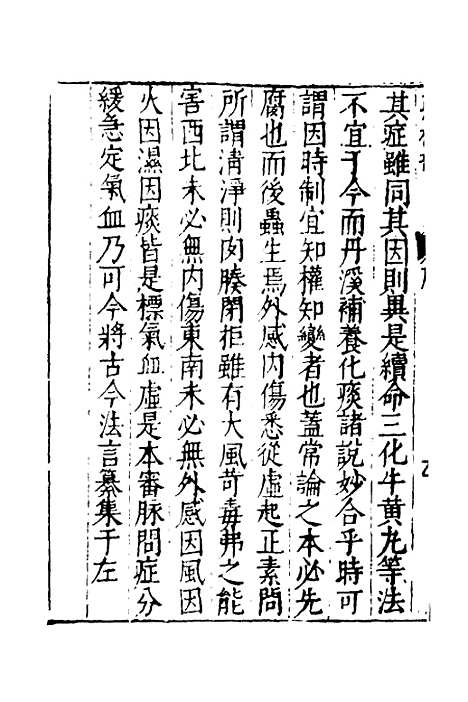 其症雖同其因則異是續命三化牛黄丸等法
不宜于今而丹溪補養化痰諸說妙合乎時可
謂因時制宜知權知變者也蓋常論之本必先
腐也而後蟲生焉外感内傷悉從虛起正素問
所謂清淨則肉腠閉拒雖有大風苛毒弗之能
害西北未必無内傷東南未必無外感因風因
火因濕因痰皆是標氣血虛是本審脉問症分
緩急定氣血乃可今將古今法言纂集于左